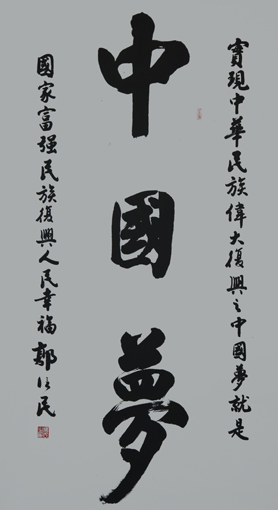 實現中華民族偉大復興之中國夢就是
中國夢
國家富强民族復興人民幸福 鄭
民